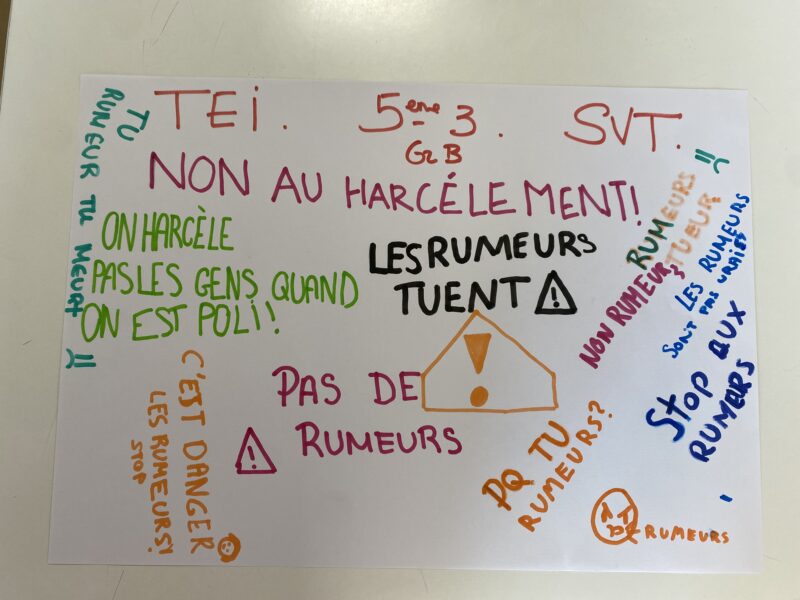 TEI. 5eme 3. SVT.
Gr B
NON AU HARCÉLEMENT!
TU
RUMEUR TU MEURT !!
ON HARCÈLE
PAS LES GENS QUAND
ON EST POLI!
LES RUMEURS
TUENT !
!
PAS DE
RUMEURS
!
RUMEURS
TUEUR
!!
NON RUMEURS
LES RUMEURS
SONT PAS VRAIES
STOP AUX
RUMERS
C'EST DANGER
LES RUMEURS!
STOP
PQ TU
RUMEURS?
RUMEURS